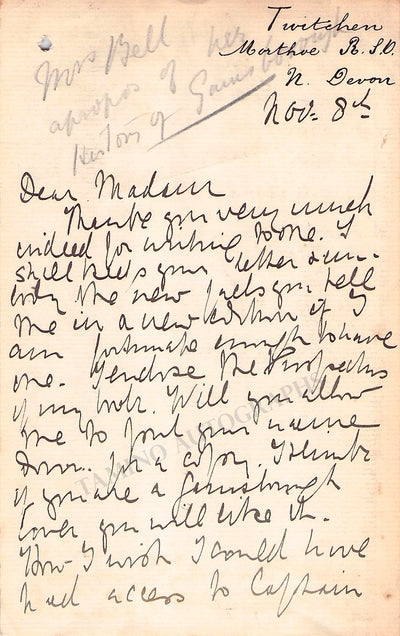 Twitchen
Morthoe R.S.O.
N. Devon
Nov: 8th
Mrs Bell
apropos of her
History of Gainsborough
Dear Madam
Thank you very much
indeed for writing to me. I
shall keep your letter & em-
body the new facts you tell
me in a new edition if I
am fortunate enough to have
one. I enclose the Prospectus
of my book. Will you allow
me to put your name
down for a copy. I think
if you are a Gainsborough
lover you will like it.
How I wish I could have
had access to Captain
TAMINO AUTOGRAPHS